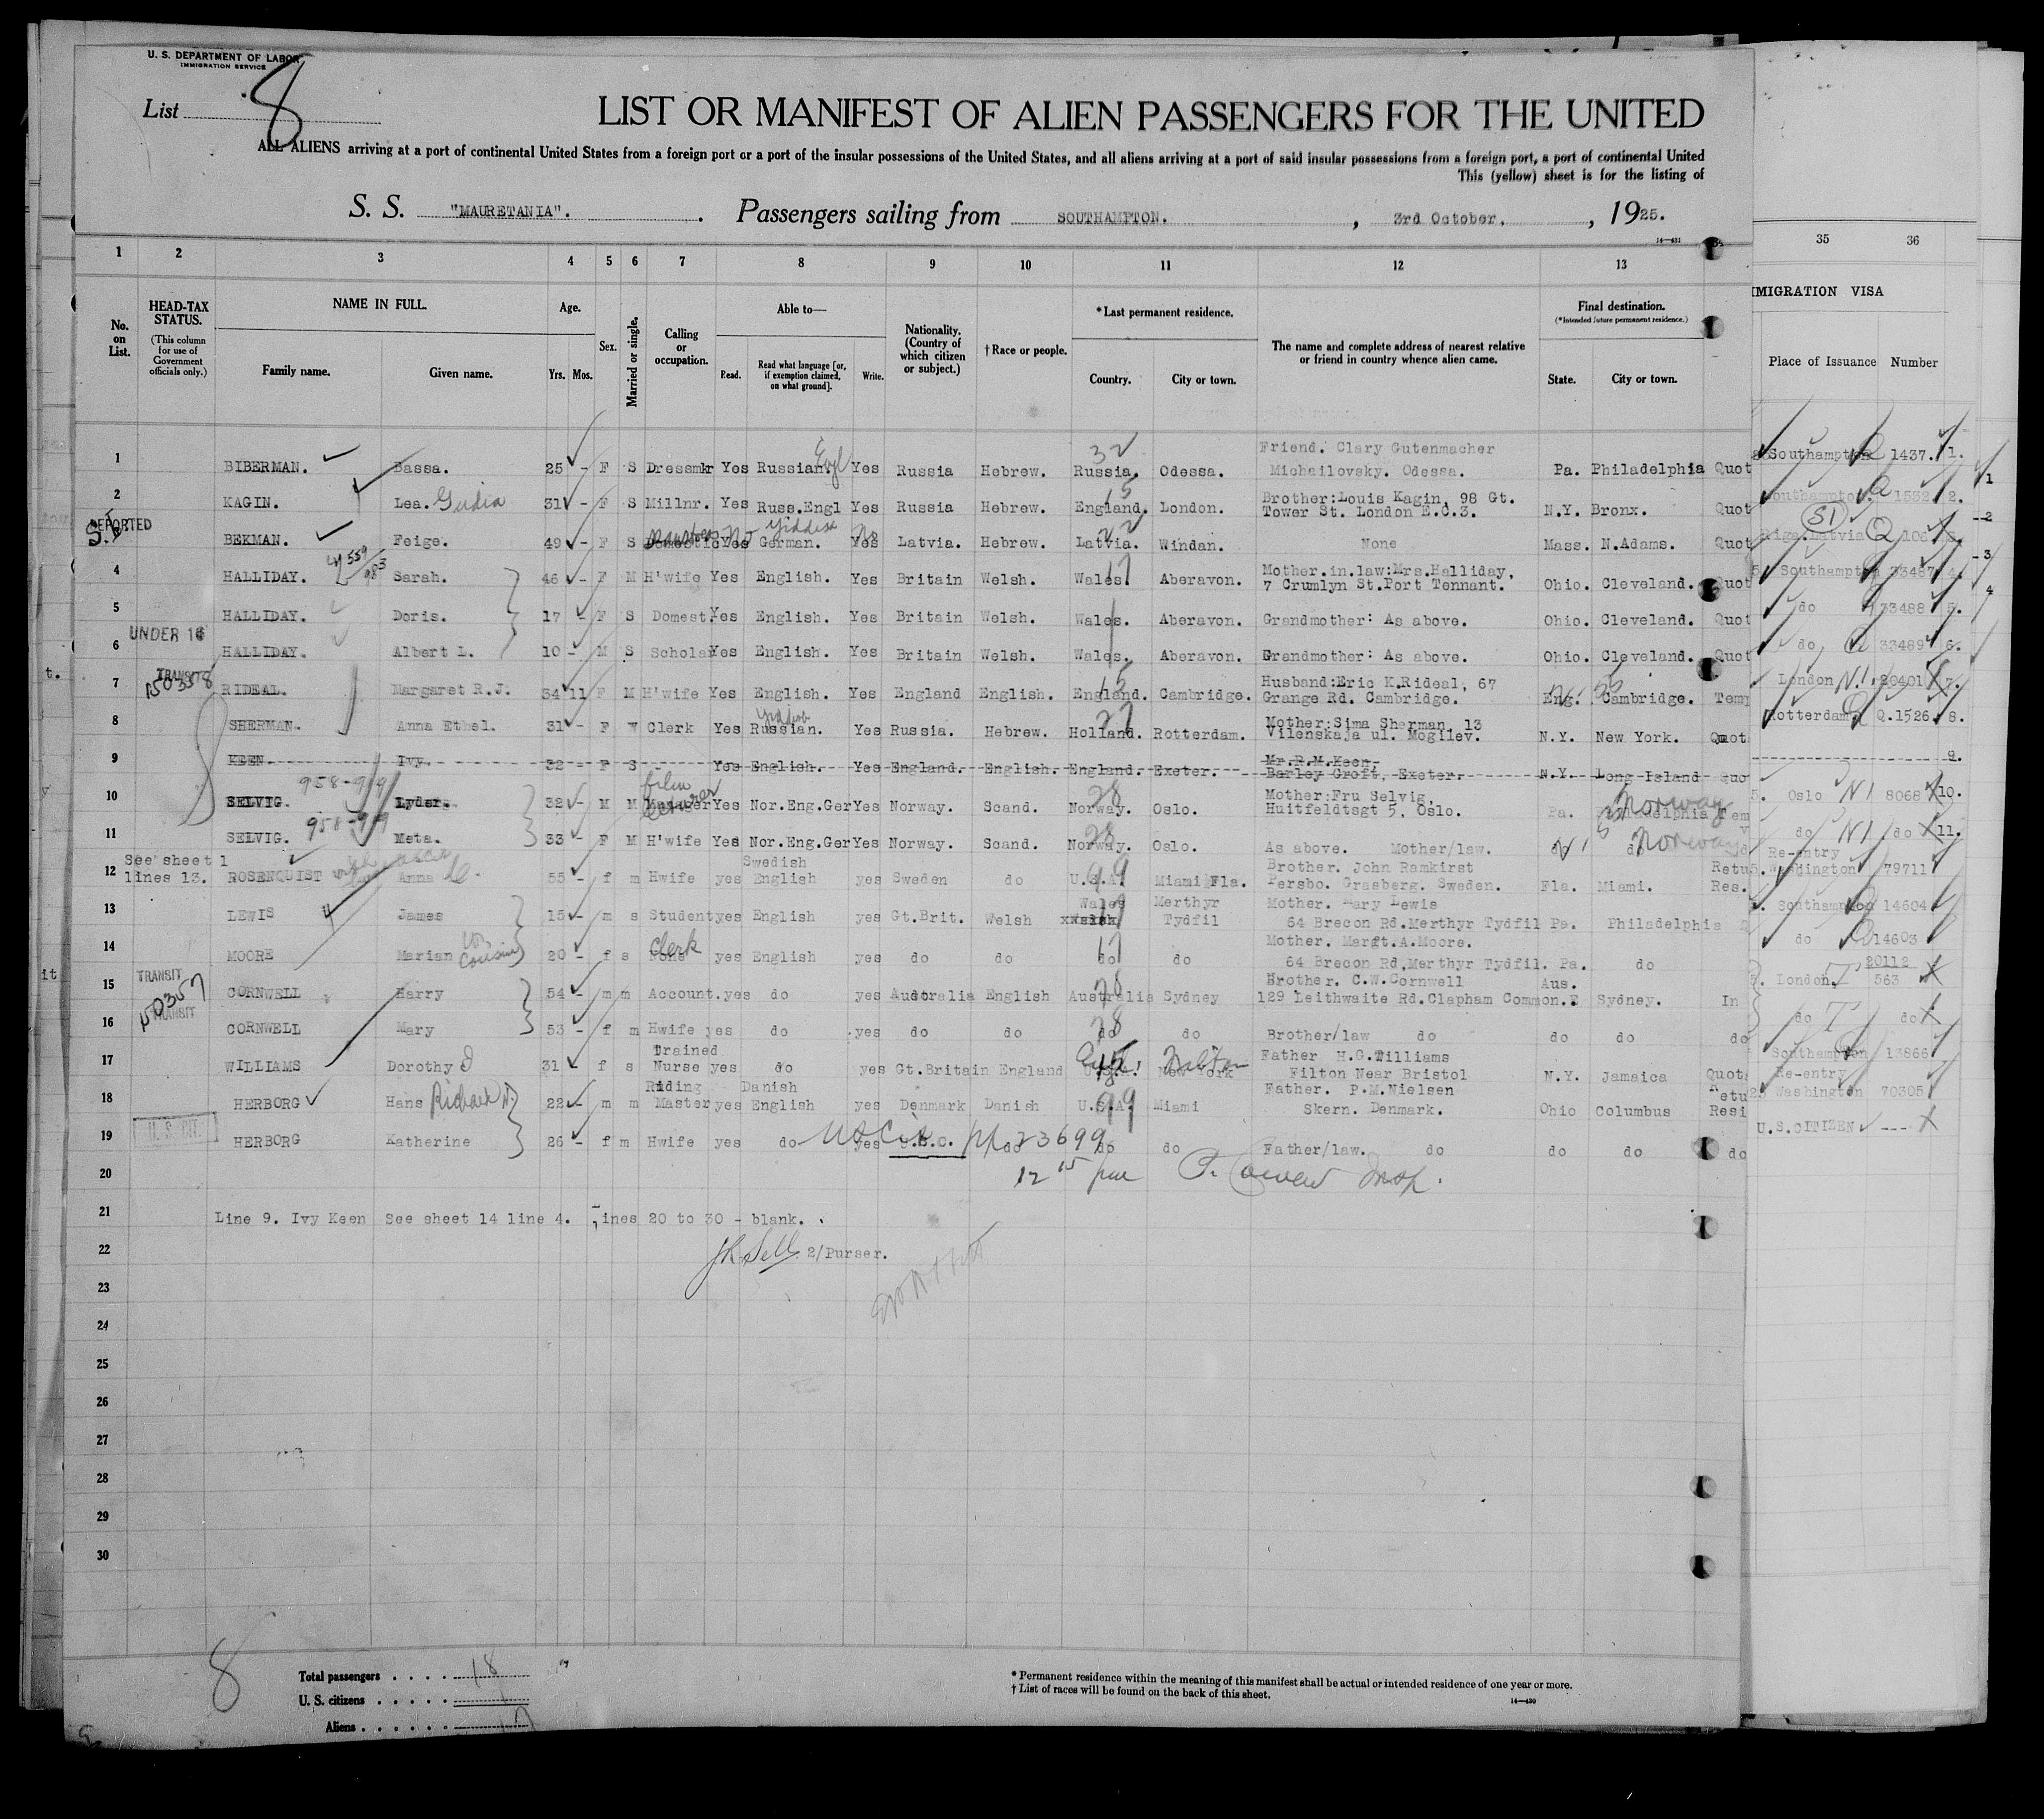 U. S. DEPARTMENT OF LABOR
IMMIGRATION SERVICE
List 8
LIST OR MANIFEST OF ALIEN PASSENGERS FOR THE UNITED
ALL ALIENS arriving at a port of continental United States from a foreign port or a port of the insular possessions of the United States, and all aliens arriving at a port of said insular possessions from a foreign port, a port of continental United
This (yellow) sheet is for the listing of
S. S. "MAURETANIA". Passengers sailing from SOUTHAMPTON. , 3rd October. , 1925.
14—431
1 2 3 4 5 6 7 8 9 10 11 12 13 35 36
No. on List.
HEAD-TAX STATUS.
(This column for use of Government officials only.)
NAME IN FULL.
Family name. Given name.
Age.
Yrs. Mos.
Sex.
Married or single.
Calling or occupation.
Able to—
Read. Read what language [or, if exemption claimed, on what ground]. Write.
Nationality. (Country of which citizen or subject.)
†Race or people.
*Last permanent residence.
Country. City or town.
The name and complete address of nearest relative or friend in country whence alien came.
Final destination.
(*Intended future permanent residence.)
State. City or town.
IMMIGRATION VISA
Place of Issuance Number
1 BIBERMAN. Bassa. 25 - F S Dressmkr Yes Russian. Engl Yes Russia Hebrew. 32 Russia. Odessa. Friend. Clary Gutenmacher Michailovsky. Odessa. Pa. Philadelphia Quot Southampton Q 1437. 1.
2 KAGIN. Lea. 31 - F S Millnr. Yes Russ.Engl Yes Russia Hebrew. 15 England. London. Brother:Louis Kagin, 98 Gt. Tower St. London E.C.3. N.Y. Bronx. Quot Southampton. Q 1532 2.
DEPORTED BEKMAN. Feige. 49 - F S Domestic Yes No German. Yiddish Yes No Latvia. Hebrew. 22 Latvia. Windan. None Mass. N.Adams. Quot S1 Riga.Latvia Q 106
4 HALLIDAY. Sarah. 46 - F M H'wife Yes English. Yes Britain Welsh. Wales. 17 Aberavon. Mother.in.law:Mrs.Halliday, 7 Crumlyn St.Port Tennant. Ohio. Cleveland. Quot Southampton 33487 4.
5 HALLIDAY. Doris. 17 - F S Domest. Yes English. Yes Britain Welsh. Wales. Aberavon. Grandmother: As above. Ohio. Cleveland. Quot do 33488 5.
UNDER 16
6 HALLIDAY. Albert L. 10 - M S Scholar Yes English. Yes Britain Welsh. Wales. Aberavon. Grandmother: As above. Ohio. Cleveland. Quot do 33489 6.
TRANSIT
7 RIDEAL. Margaret R.J. 34 11 F M H'wife Yes English. Yes England English. 15 England. Cambridge. Husband:Eric K.Rideal, 67 Grange Rd. Cambridge. Eng. Cambridge. Temp London N.1. 20401 7.
8 SHERMAN. Anna Ethel. 31 - F W Clerk Yes Yiddish Russian. Yes Russia. Hebrew. 27 Holland. Rotterdam. Mother:Sima Sherman, 13 Vilenskaja ul. Mogilev. N.Y. New York. Quot Rotterdam. Q.1526. 8.
9 KEEN. Ivy. 32 - F S - Yes English. Yes England. English. England. Exeter. Mr.R.M.Keen, Barley Croft, Exeter. N.Y. Long Island Quo 9.
10 SELVIG. 958-919 Lyder. 32 - M M Manager film Yes Nor.Eng.Ger Yes Norway. Scand. 28 Norway. Oslo. Mother:Fru Selvig, Huitfeldtsgt 5, Oslo. Pa. Philadelphia Norway Tem Oslo N1 8068 10.
11 SELVIG. 958-919 Meta. 33 - F M H'wife Yes Nor.Eng.Ger Yes Norway. Scand. 28 Norway. Oslo. As above. Mother/law. do Norway do N1 do 11.
See sheet 1
12 lines 13. ROSENQUIST Anna C. 55 - f m Hwife yes Swedish English yes Sweden do U.S.A. 99 Miami Fla. Brother. John Ramkirst Persbo. Grasberg. Sweden. Fla. Miami. Retu Res. Re-entry Washington 79711
13 LEWIS James 15 - m s Student yes English yes Gt.Brit. Welsh Wales 17 Merthyr Tydfil Mother. Mary Lewis 64 Brecon Rd.Merthyr Tydfil Pa. Philadelphia Southampton 14604
14 MOORE Marian Cousin 20 - f s None Clerk yes English yes do do do 17 do Mother. Margt.A.Moore. 64 Brecon Rd,Merthyr Tydfil. Pa. do do Q 14603
TRANSIT
15 50357 CORNWELL Harry 54 - m m Account. yes do yes Australia English Australia 28 Sydney Brother. C.W.Cornwell 129 Leithwaite Rd.Clapham Common. Aus. Sydney. In London. T 20112 563
TRANSIT
16 CORNWELL Mary 53 - f m Hwife yes do yes do do do 28 do Brother/law do do do do do T do
17 WILLIAMS Dorothy D 31 f s Trained Nurse yes do yes Gt.Britain England U.S.A. New York Father H.G.Williams Filton Near Bristol N.Y. Jamaica Quot Southampton 13866
18 HERBORG Hans Richard N. 22 - m m Riding Master yes Danish English yes Denmark Danish U.S.A. 99 Miami Father. P.M.Nielsen Skern. Denmark. Ohio Columbus Retu Resi Re-entry Washington 70305
U. S. CIT.
19 HERBORG Katherine 26 - f m Hwife yes do yes U.S.C. do do do Father/law. do do do do U.S.CITIZEN ---
US Cit pp 23699
20 12 15 pm
21 Line 9. Ivy Keen See sheet 14 line 4. Lines 20 to 30 - blank.
22 2/Purser.
23
24
25
26
27
28
29
30
8
Total passengers . . . . . 18
U. S. citizens . . . . . 1
Aliens . . . . . . 17
* Permanent residence within the meaning of this manifest shall be actual or intended residence of one year or more.
† List of races will be found on the back of this sheet.
14—430